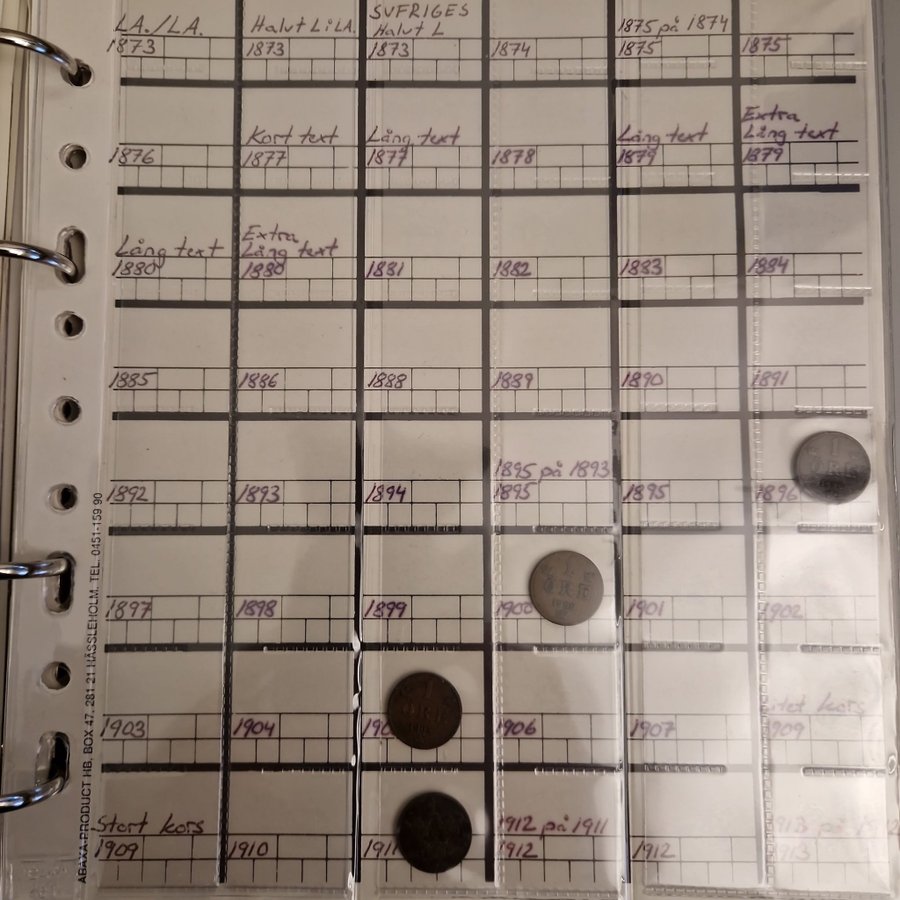 LA./LA.
1873
Halvt L i LA.
1873
SVERIGES
Halvt L
1873
1874
1875 på 1874
1875
1875
1876
Kort text
1877
Lång text
1877
1878
Lång text
1879
Extra
Lång text
1879
Lång text
1880
Extra
Lång text
1880
1881
1882
1883
1884
1885
1886
1888
1889
1890
1891
1892
1893
1894
1895 på 1893
1895
1895
1896
1 ÖRE
1897
1898
1899
1900
1 ÖRE
1901
1902
1903
1904
190
1 ÖRE
1906
1907
itet kors
1909
Stort kors
1909
1910
1911
1912 på 1911
1912
1912
1913 på 1912
1913
ABAXA-PRODUCT HB, BOX 47, 281 21 HÄSSLEHOLM. TEL. 0451-159 90